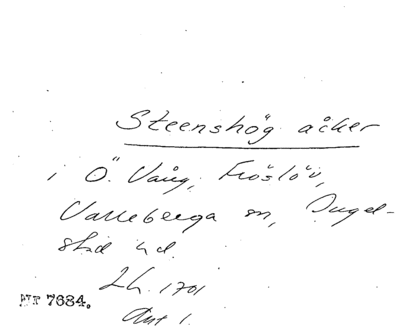 Steenshög åcker
i Ö. Vång, Fröslöv,
Valleberga sn, Ingel-
stad hd.
Lh. 1701
NT 7684.
Akt 1.